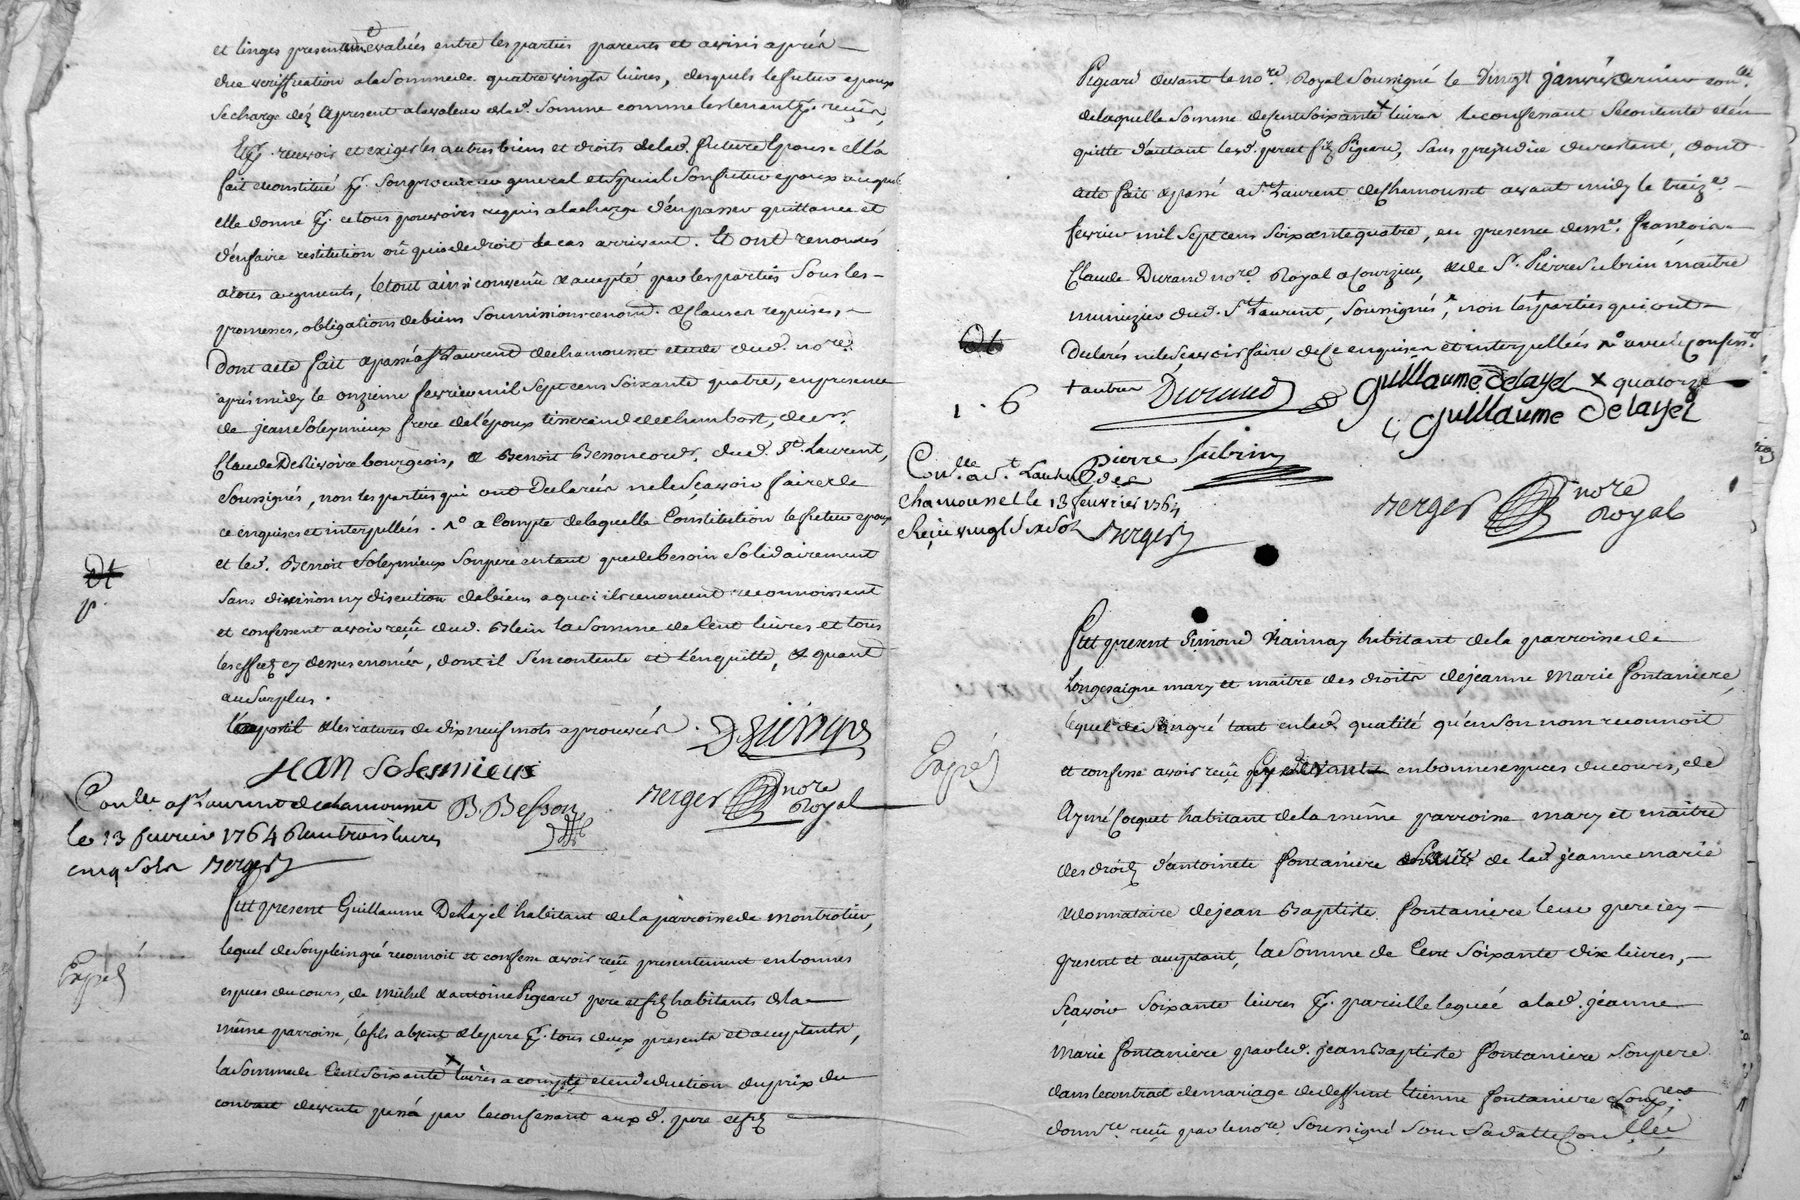 et linges presentement evalués entre les parties parents et amis après
due veriffication a la somme de quatre vingts livres, desquels le futur epoux
se charge dez apresent a la valeur de lad. somme comme les tenant pr. reçus,
Et pr. recevoir et exiger les autres biens et droits de lad. future Epouse ella
fait et constitué pr. son procureur general et special son futur epoux auquel
elle donne pr. ce tous pouvoirs requis a la charge d'en passer quittance et
d'en faire restitution où qui de droit le cas arrivant. Et ont renoncés
a tous augments, le tout ainsi convenû et accepté par les parties sous les
promesses, obligations de biens soumissions renond. et clauses requises,
Dont acte fait et passé a St Laurent de chamousset etude dud. nore.
après midy le onzieme fevrier mil sept cens soixante quatre, en presence
de jean Soleymieux frere de l'epoux tisserand de chambost, de sr.
Claude Derivoire bourgeois, et Benoit Besson cord. dud. St. Laurent,
soussignés, non les parties qui ont declarés ne le sçavoir faire de
ce enquises et interpellées. no a compte de laquelle Constitution le futur epoux
et led. Benoit Soleymieux son pere en tant que de besoin solidairement
sans division ny discution de biens a quoi ils renoncent reconnoissent
et confessent avoir reçû dud. Blein la somme de Cent livres et tous
les effets cy dessus enoncés, dont il s'en contente et l'en quitte, et quant
au surplus.
L'apostil et les ratures de dix neuf mots aprouvés.
JEAN Solemieus
B. Besson
Berger nore Royal
Conllé a St Laurent de chamousset
le 13 fevrier 1764 Reçu trois livres
cinq sols Berger
Dt
p.
Fut present Guillaume Delayel habitant de la parroisse de montrotier,
lequel de son plein gré reconnoit et confesse avoir reçû presentement en bonnes
especes du cours, de Michel et antoine Pigeard pere et fils habitants de la
même parroisse, le fils absent et le pere pr. tous deux present et acceptants,
la somme de Cent soixante x livres a compte et en deduction du prix du
contract de vente passé par le confessant aux d. pere et fils
Expéd
Pigeard devant le nore. Royal soussigné le vingt janvier dernier con.lé
de laquelle somme de Cent soixante x livres le confessant se contente et en
quitte d'autant lesd. pere et fils Pigeard, sans prejudice du restant, dont
acte fait et passé a St. Laurent de chamousset avant midy le treize.
fevrier mil sept cens soixante quatre, en presence de me. françois
Claude Durand nore. Royal a Courzieu, et de Sr. Pierre Subrin maitre
menuizier dud. St Laurent, soussignés, non les + parties qui ont
Declarés ne le sçavoir faire de ce enquises et interpellées no avec le confesst.
+ autres Durand Guillaume Delayel x quatorze
Guillaume Delayel
Dt
1 . 6
Pierre Subrin
Conllé. a St. Laurent de
chamousset le 13 fevrier 1764
Reçu vingt six sols Berger
Berger nore Royal
Fut present Simond Viannay habitant de la parroisse de
Longesaigne mary et maitre des droits de jeanne Marie fontaniere,
lequel de son gré tant en lad. qualité qu'en son nom reconnoit
et confesse avoir reçû cy devant en bonnes especes du cours, de
Aymé Coquet habitant de la même parroisse mary et maitre
des droits d'antoinete fontaniere sœur de lad. jeanne marie
et donnataire de jean Baptiste fontaniere leur pere icy
present et acceptant, la somme de Cent soixante dix livres,
sçavoir soixante livres pr. pareille leguée a lad. jeanne
Marie fontaniere par led. jean Baptiste fontaniere son pere
dans le contract de mariage de deffunt Etienne fontaniere
donnre. reçû par le nore. soussigné sous sa datte Conllé
Expéd